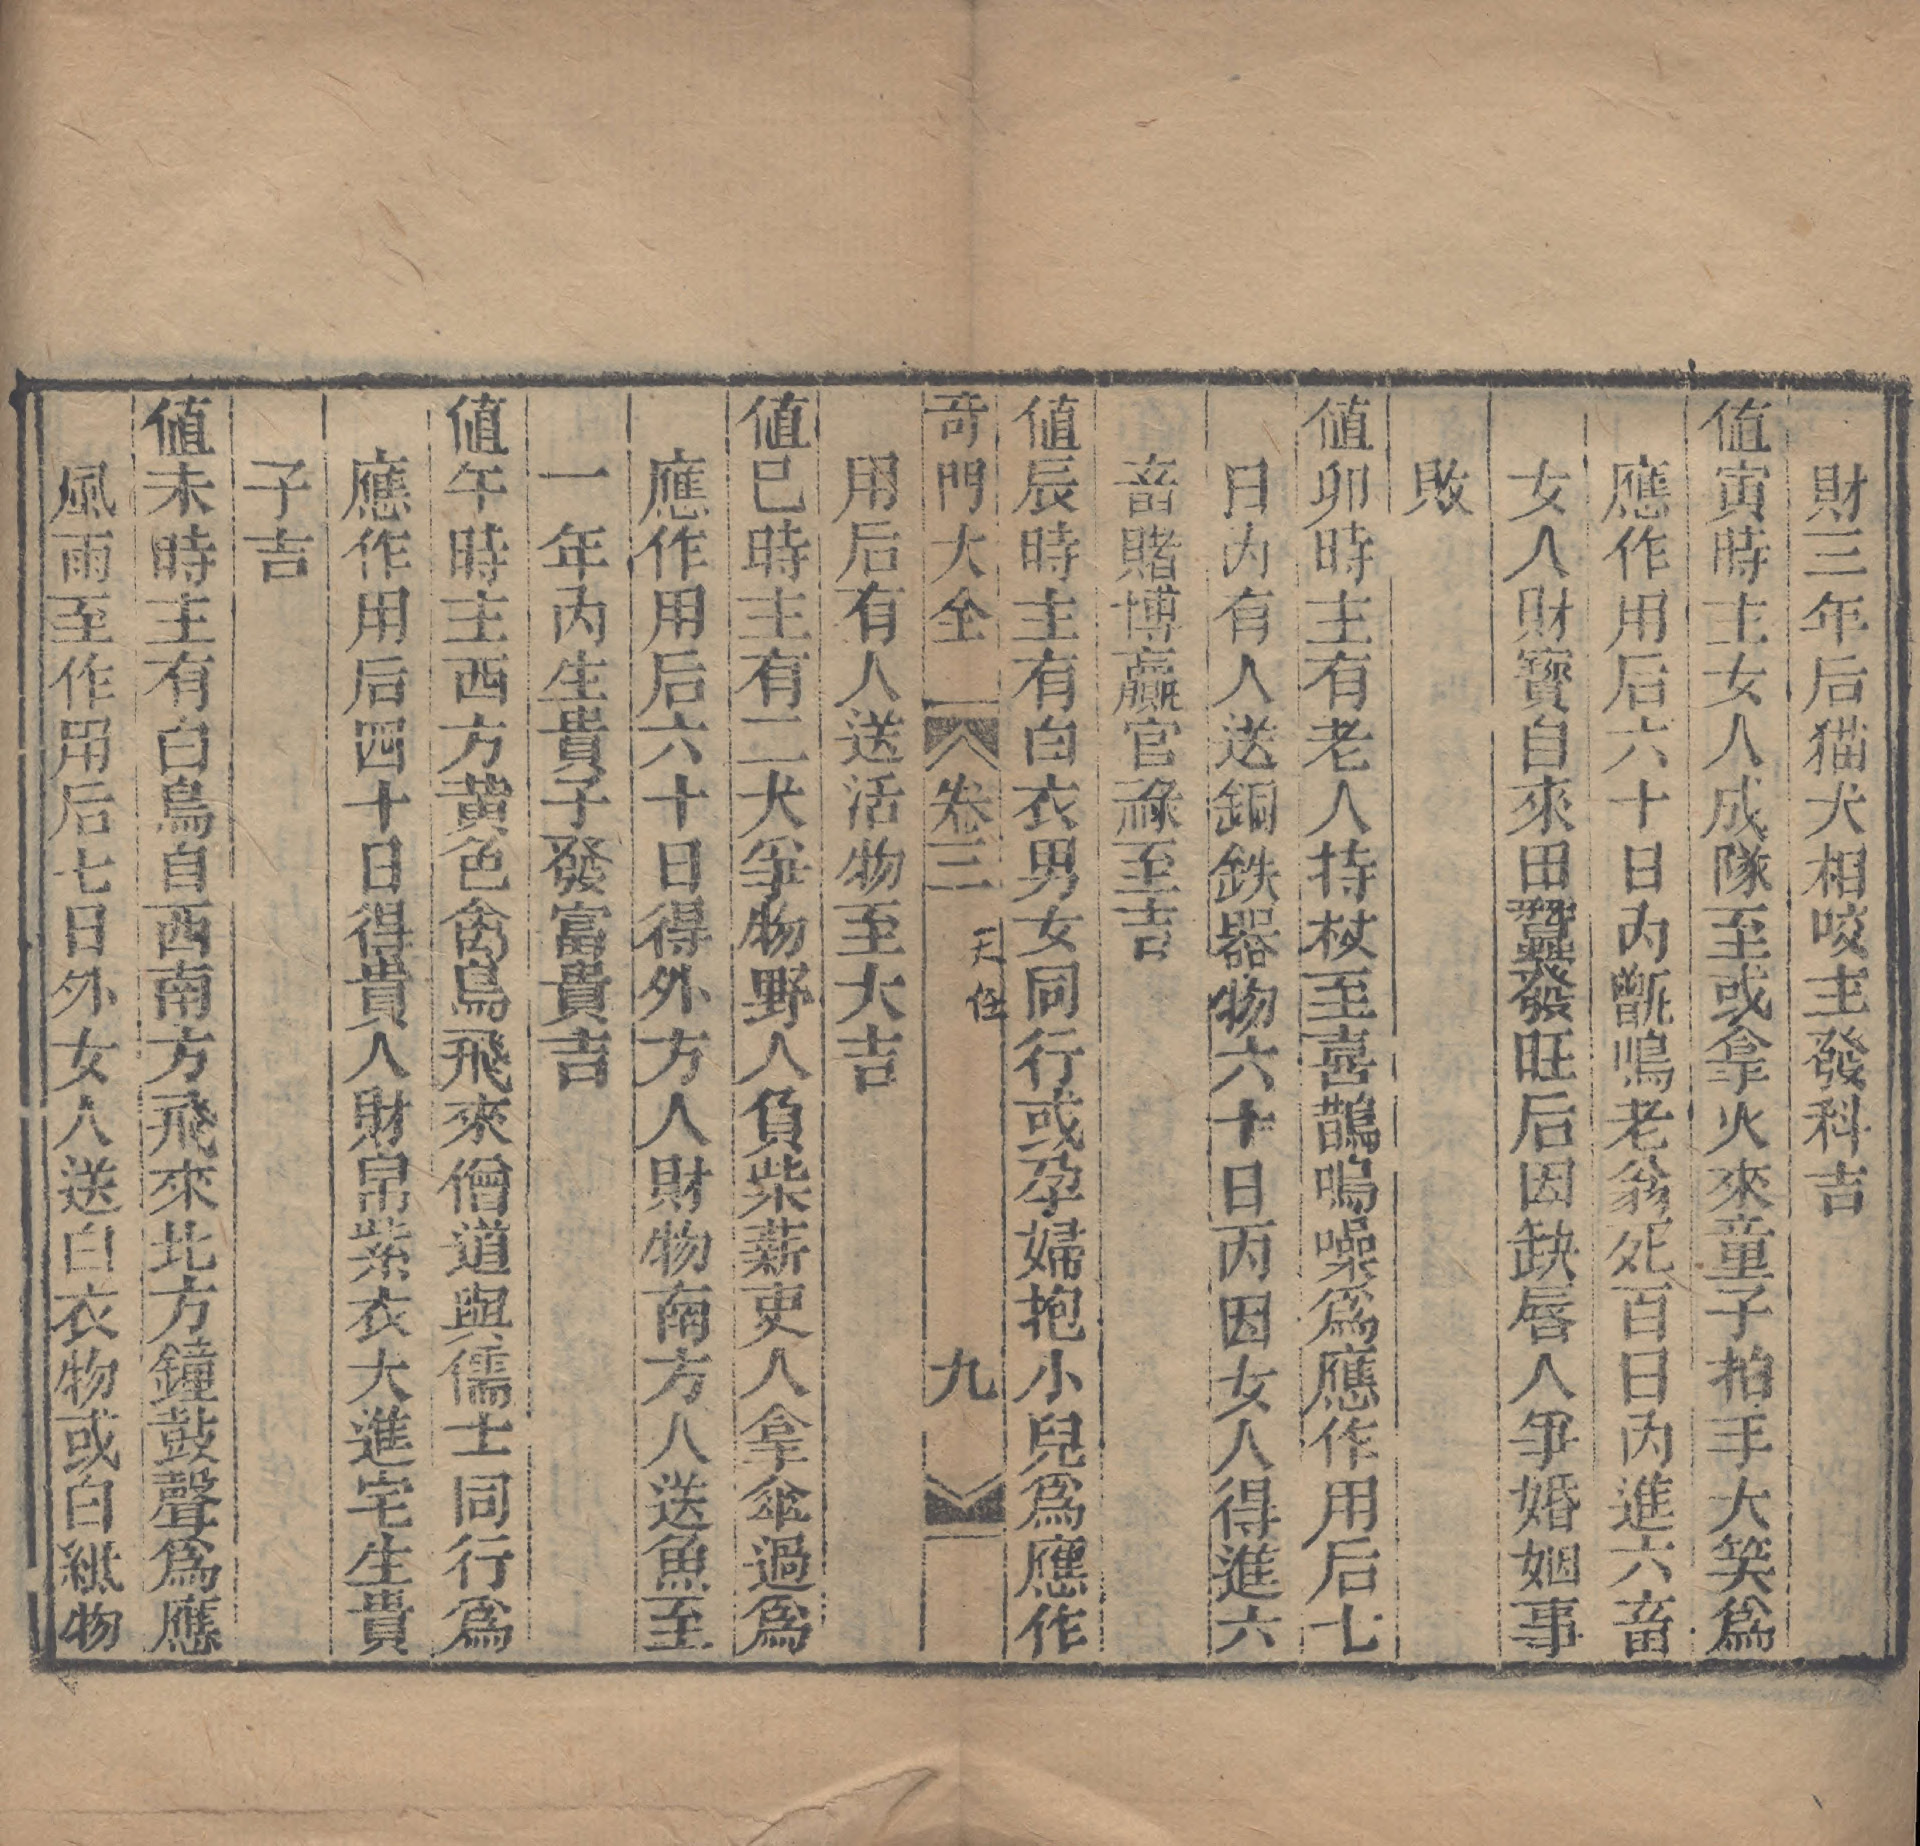 財三年后猫犬相咬主發科吉
值寅時主女人成隊至或拿火來童子拍手大笑爲
應作用后六十日內甑鳴老翁死百日內進六畜
女人財寳自來田蠶發旺后因缺唇人爭婚姻事
敗
值卯時主有老人持杖至喜鵲鳴噪爲應作用后七
日內有人送銅鉄器物六十日丙因女人得進六
畜賭博贏官祿至吉
值辰時主有白衣男女同行或孕婦抱小兒爲應作
奇門大全 卷三 天任 九
用后有人送活物至大吉
值巳時主有二犬爭物野人負柴薪吏人拿傘過爲
應作用后六十日得外方人財物南方人送魚至
一年內生貴子發富貴吉
值午時主西方黄色禽鳥飛來僧道與儒士同行爲
應作用后四十日得貴人財帛紫衣大進宅生貴
子吉
值未時主有白鳥自西南方飛來北方鐘鼓聲爲應
風雨至作用后七日外女人送白衣物或白紙物